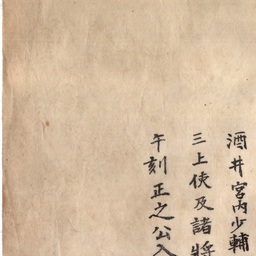 酒井宮内少輔
三上使及諸將
午刻正之公入